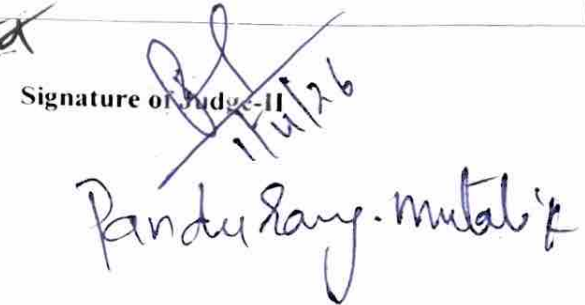 Signature of Judge-II
1/4/26
Pandurang. Mutalik